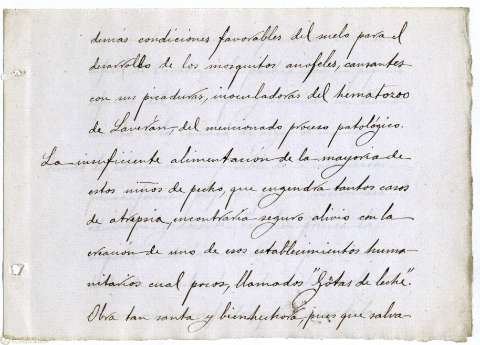 demás condiciones favorables del suelo para el
desarrollo de los mosquitos anofeles, causantes
con sus picaduras, inoculadoras del hematozoo
de Laverán, del mencionado proceso patológico.
La insuficiente alimentación de la mayoría de
estos niños de pecho, que engendra tantos casos
de atrepsia, encontraría seguro alivio con la
creación de uno de esos establecimientos huma-
nitarios cual pocos, llamados "Gotas de leche".
Obra tan santa y bienhechora, pues que salva-